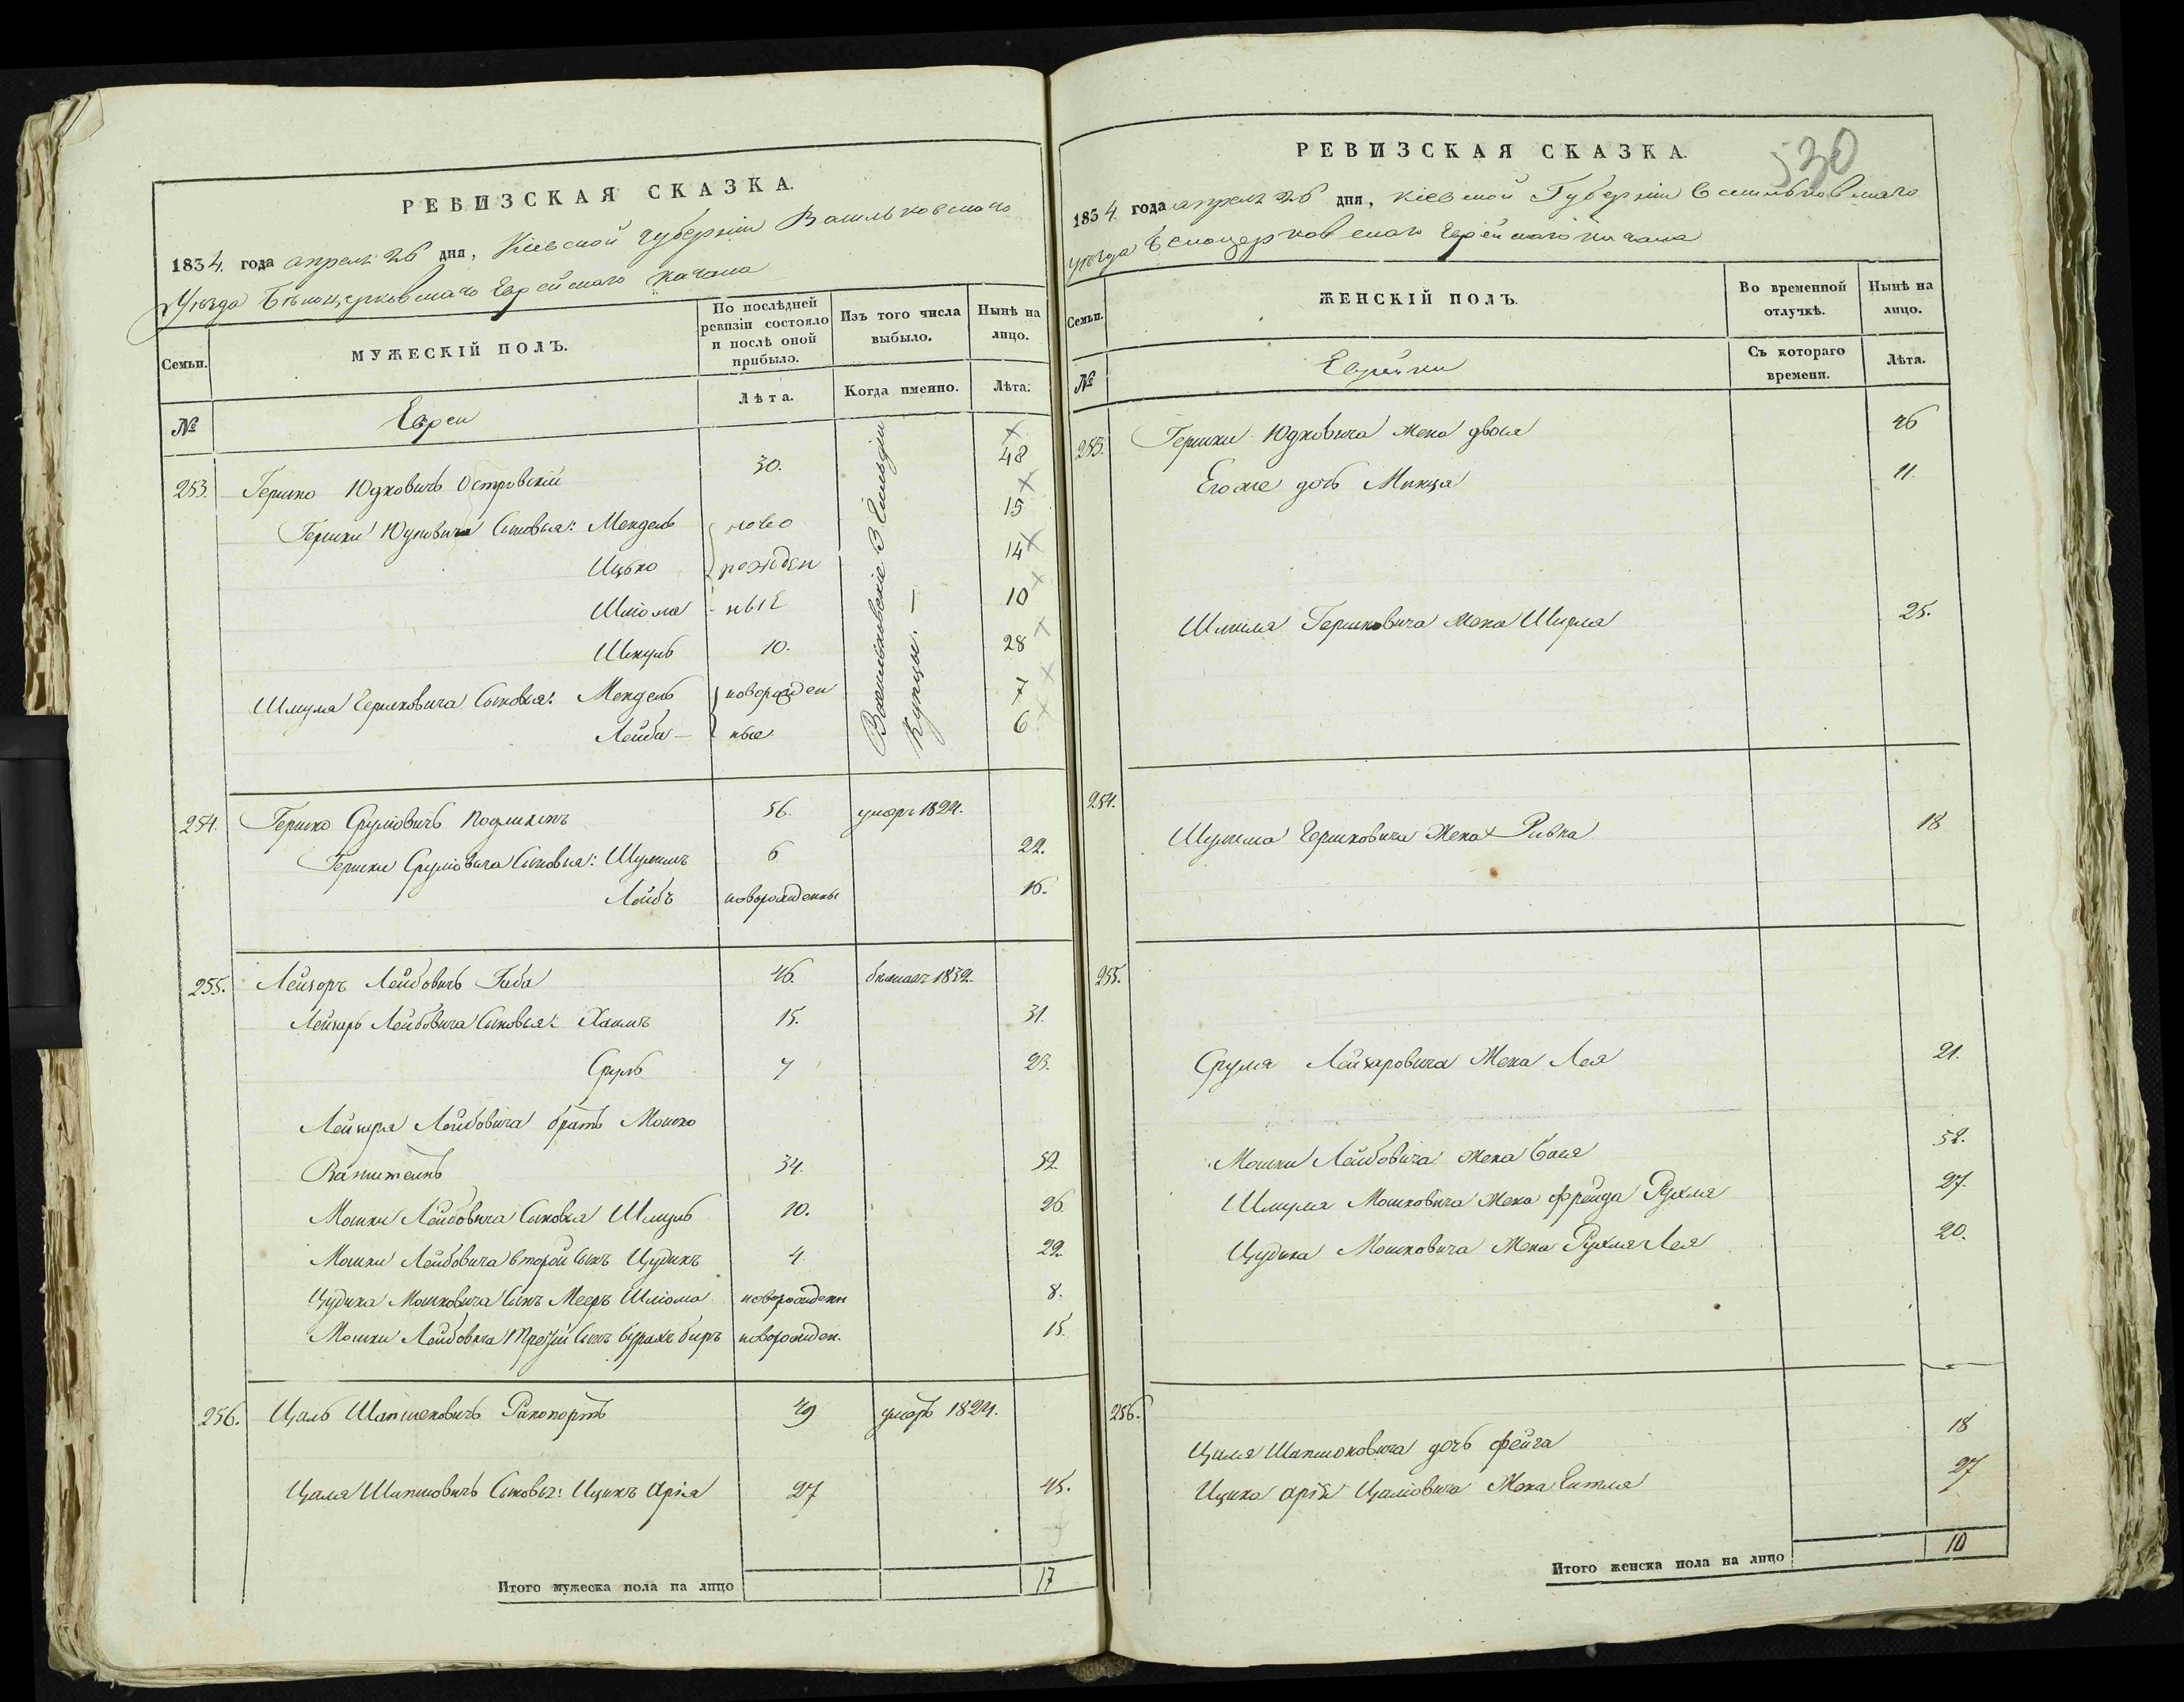 РЕВИЗСКАЯ СКАЗКА.
1834. года апреля 26 дня, Кіевской губерніи Васильковскаго
Уѣзда Бѣлоцерковскаго Еврейскаго Кагала
Семьи.
МУЖЕСКІЙ ПОЛЪ.
По послѣдней ревизіи состояло и послѣ оной прибыло.
Изъ того числа выбыло.
Нынѣ на лицо.
№
Евреи
Лѣта.
Когда именно.
Лѣта.
253. Гершко Юдковичъ Островскій 30. 48
Гершки Юдковича Сыновья: Мендель ново 15
Ицько рожден 14
Шлiома ные 10
Шмуль 10. 28
Шмуля Гершковича Сыновья: Мендель новорожден 7
Лейба ные 6
Васильковскіе 3 Гильдіи
Купцы. —
254. Гершко Срулiовичъ 56. умеръ 1824.
Гершки Срулiовича Сыновья: Шулимъ 6 22.
Лейбъ новорожденны 16.
255. Лейзоръ Лейбовичъ 46. 1832.
Лейзоръ Лейбовича Сыновья: Хаимъ 15. 31.
Сруль 7 23.
Лейзера Лейбовича братъ Мошко
34. 52.
Мошки Лейбовича Сыновья Шмуль 10. 26
Мошки Лейбовича второй Сынъ Цудикъ 4 22.
Цудика Мошковича Сынъ Мееръ Шлiома новорожден 8.
Мошки Лейбовича Третій Сынъ новорожден. 15.
256. Цаль Шапшековичъ Рапопортъ 49 умеръ 1824.
Цаля Шапшовичъ Сыновья: Ицикъ Арія 27 45.
Итого мужеска пола на лицо 17
530
РЕВИЗСКАЯ СКАЗКА.
1834. года апреля 26 дня, Кіевской Губерніи Васильковскаго
уѣзда Белоцерковскаго Еврейскаго Кагала
Семьи.
ЖЕНСКІЙ ПОЛЪ.
Во временной отлучкѣ.
Нынѣ на лицо.
№
Еврейки
Съ котораго времени.
Лѣта.
253. Гершки Юдковича жена двося 46
Его же дочь 11.
Шмуля Гершковича жена 25.
254.
Шулима Гершковича Жена Ривка 18
255.
Сруля Лейзаровича Жена Лея 21.
Мошки Лейбовича жена Бася 52.
Шмуля Мошковича жена фрейда Рухля 27.
Цудика Мошковича Жена Рухля Лея 20.
256.
Цаля Шапшоковича дочь фейга 18
Ицика Арія Цалiовича Жена Ентля 27
Итого женска пола на лицо 10